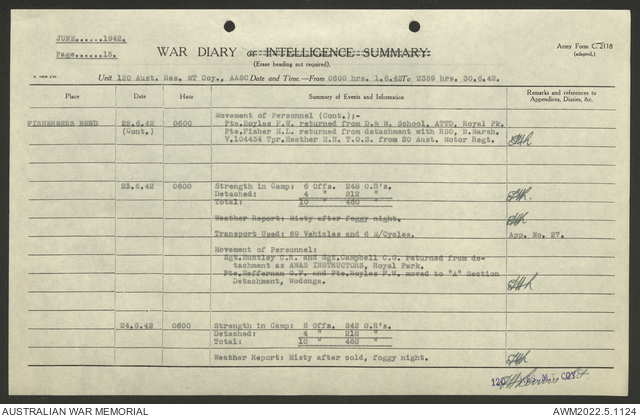 JUNE......1942.
Page......15.
WAR DIARY or INTELLIGENCE SUMMARY.
(Erase heading not required).
Army Form C.2118
(adapted.)
Unit 120 Aust. Res. MT Coy., AASC Date and Time.—From 0600 hrs. 1.6.42 To 2359 hrs. 30.6.42.
Place Date Hour Summary of Events and Information Remarks and references to
Appendices, Diaries, &c.
FISHERMENS BEND 22.6.42 0600 Movement of Personnel (Cont.);-
(Cont.) Pte.Boyles F.W. returned from D.& M. School, ATTD. Royal Pk.
Pte.Fisher H.L. returned from detachment with RSO, B.Marsh.
V.104434 Tpr.Heather H.H. T.O.S. from 20 Aust. Motor Regt.
23.6.42 0600 Strength in Camp: 6 Offs. 248 O.R's.
Detached: 4 " 212 "
Total: 10 " 460 "
Weather Report: Misty after foggy night.
Transport Used: 69 Vehicles and 6 M/Cycles. App. No. 27.
Movement of Personnel:
Sgt.Huntley C.R. and Sgt.Campbell C.G. returned from de-
tachment as AWAS INSTRUCTORS, Royal Park.
Pte.Heffernan G.F. and Pte.Boyles F.W. moved to "A" Section
Detachment, Wodonga.
24.6.42 0600 Strength in Camp: 6 Offs. 242 O.R's.
Detached: 4 " 218 "
Total: 10 " 460 "
Weather Report: Misty after cold, foggy night.
AUSTRALIAN WAR MEMORIAL
AWM2022.5.1124